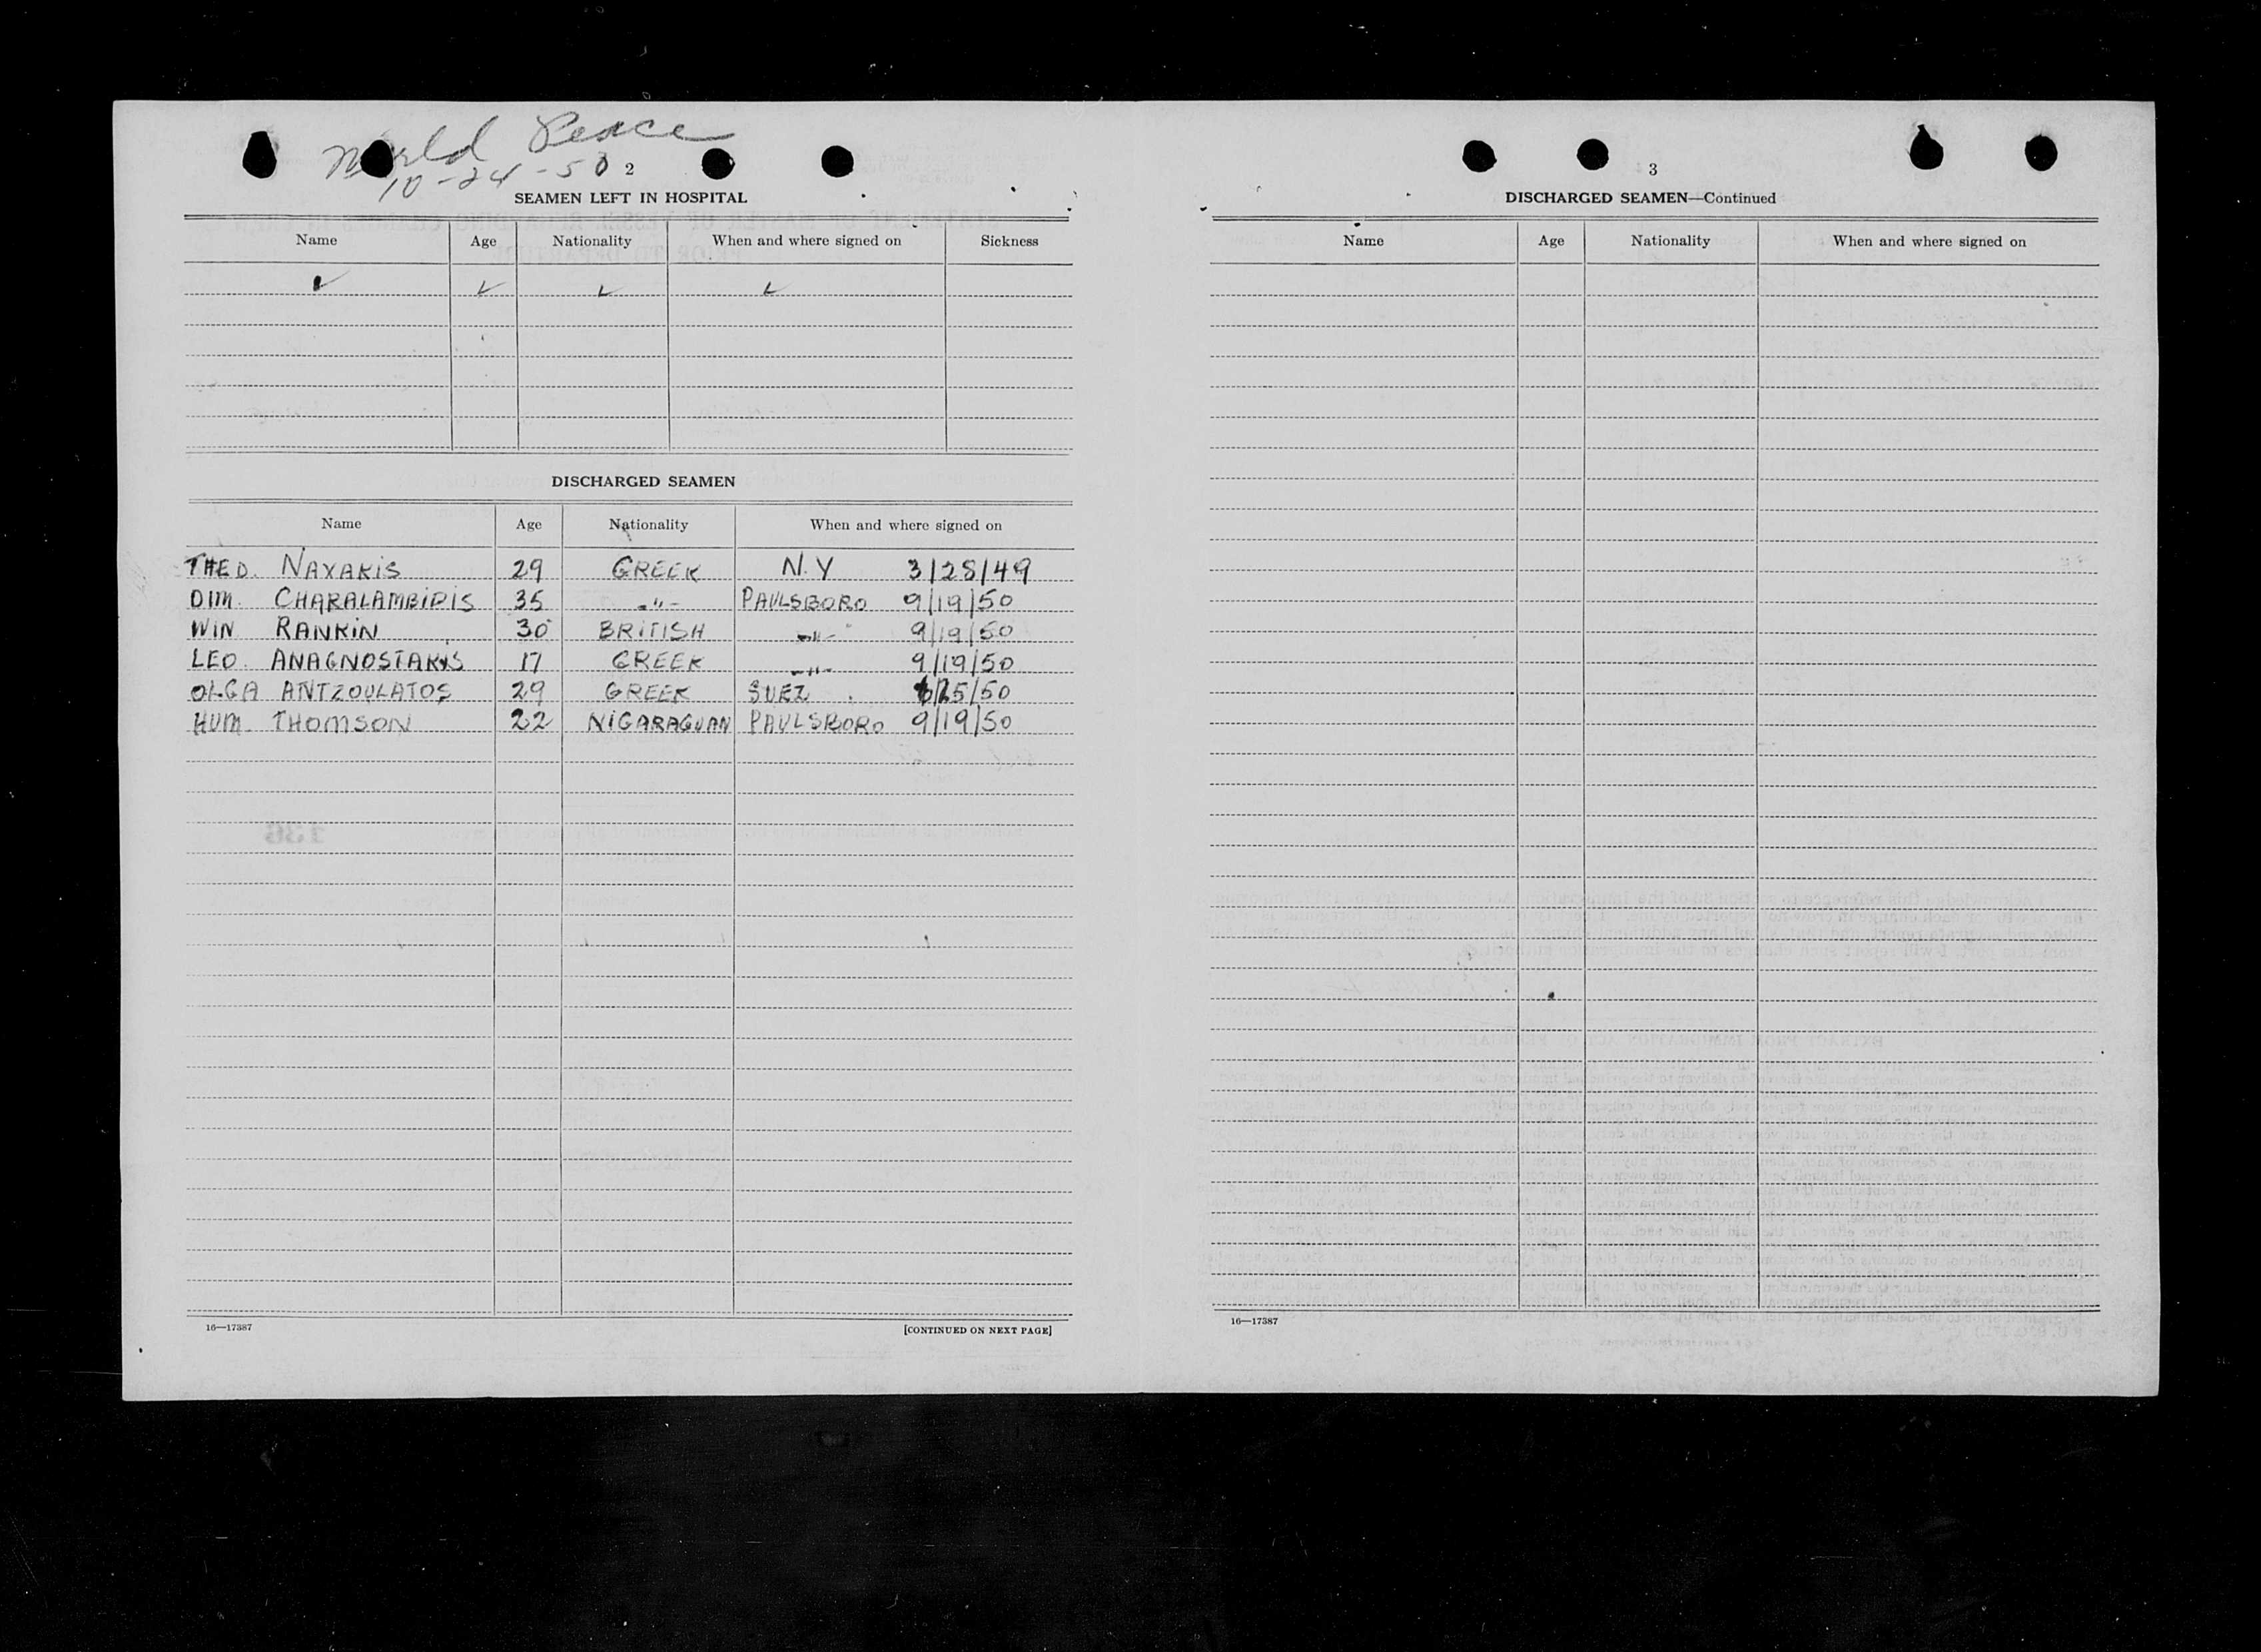 World Peace
10-24-50 2
SEAMEN LEFT IN HOSPITAL
Name Age Nationality When and where signed on Sickness
✓ ✓ ✓ ✓
DISCHARGED SEAMEN
Name Age Nationality When and where signed on
THEO. NAXAKIS 29 GREEK N.Y 3/28/49
DIM. CHARALAMBIDIS 35 -"- PAULSBORO 9/19/50
WIN RANKIN 30 BRITISH -"- 9/19/50
LEO. ANAGNOSTAKIS 17 GREEK -"- 9/19/50
OLGA ANTZOULATOS 29 GREEK SUEZ
HUM. THOMSON 22 NIGARAGUAN PAULSBORO 9/19/50
16—17387 [CONTINUED ON NEXT PAGE]
3
DISCHARGED SEAMEN—Continued
Name Age Nationality When and where signed on
16—17387